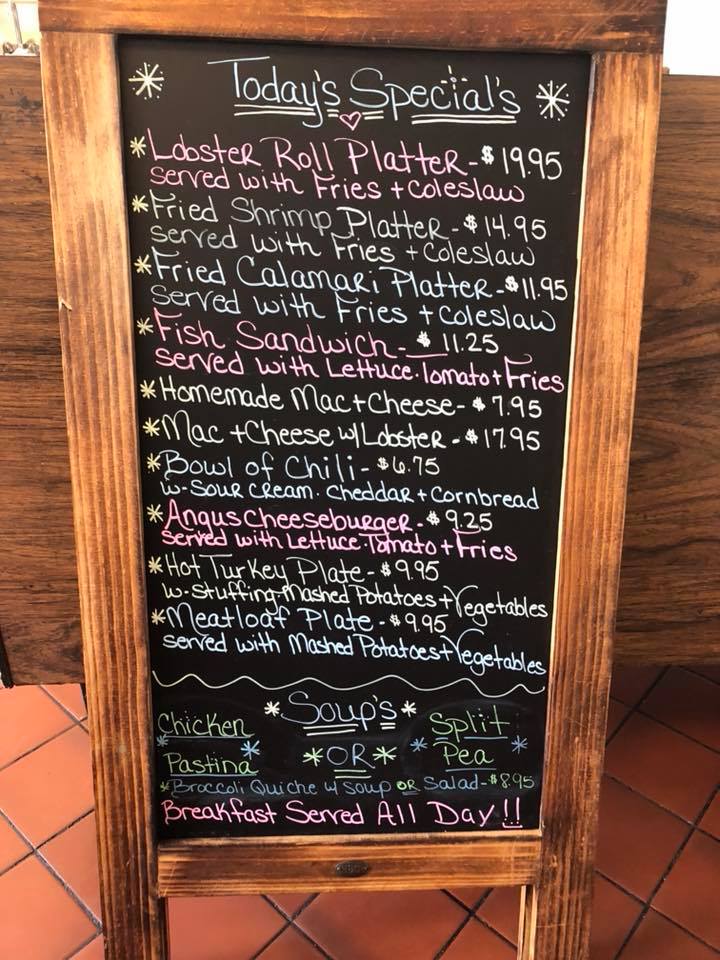 Today's Special's
*Lobster Roll Platter - $19.95
served with Fries + Coleslaw
*Fried Shrimp Platter - $14.95
served with Fries + Coleslaw
*Fried Calamari Platter - $11.95
served with Fries + Coleslaw
*Fish Sandwich - $11.25
served with Lettuce. Tomato + Fries
*Homemade Mac + Cheese - $7.95
*Mac + Cheese w/ Lobster - $17.95
*Bowl of Chili - $6.75
w- Sour Cream. Cheddar + Cornbread
*Angus Cheeseburger - $9.25
served with Lettuce. Tomato + Fries
*Hot Turkey Plate - $9.95
w. Stuffing. Mashed Potatoes + Vegetables
*Meatloaf Plate - $9.95
served with Mashed Potatoes + Vegetables
*Soup's*
Chicken Pastina
*OR*
Split Pea
*Broccoli Quiche w/ Soup OR Salad - $8.95
Breakfast Served All Day!!